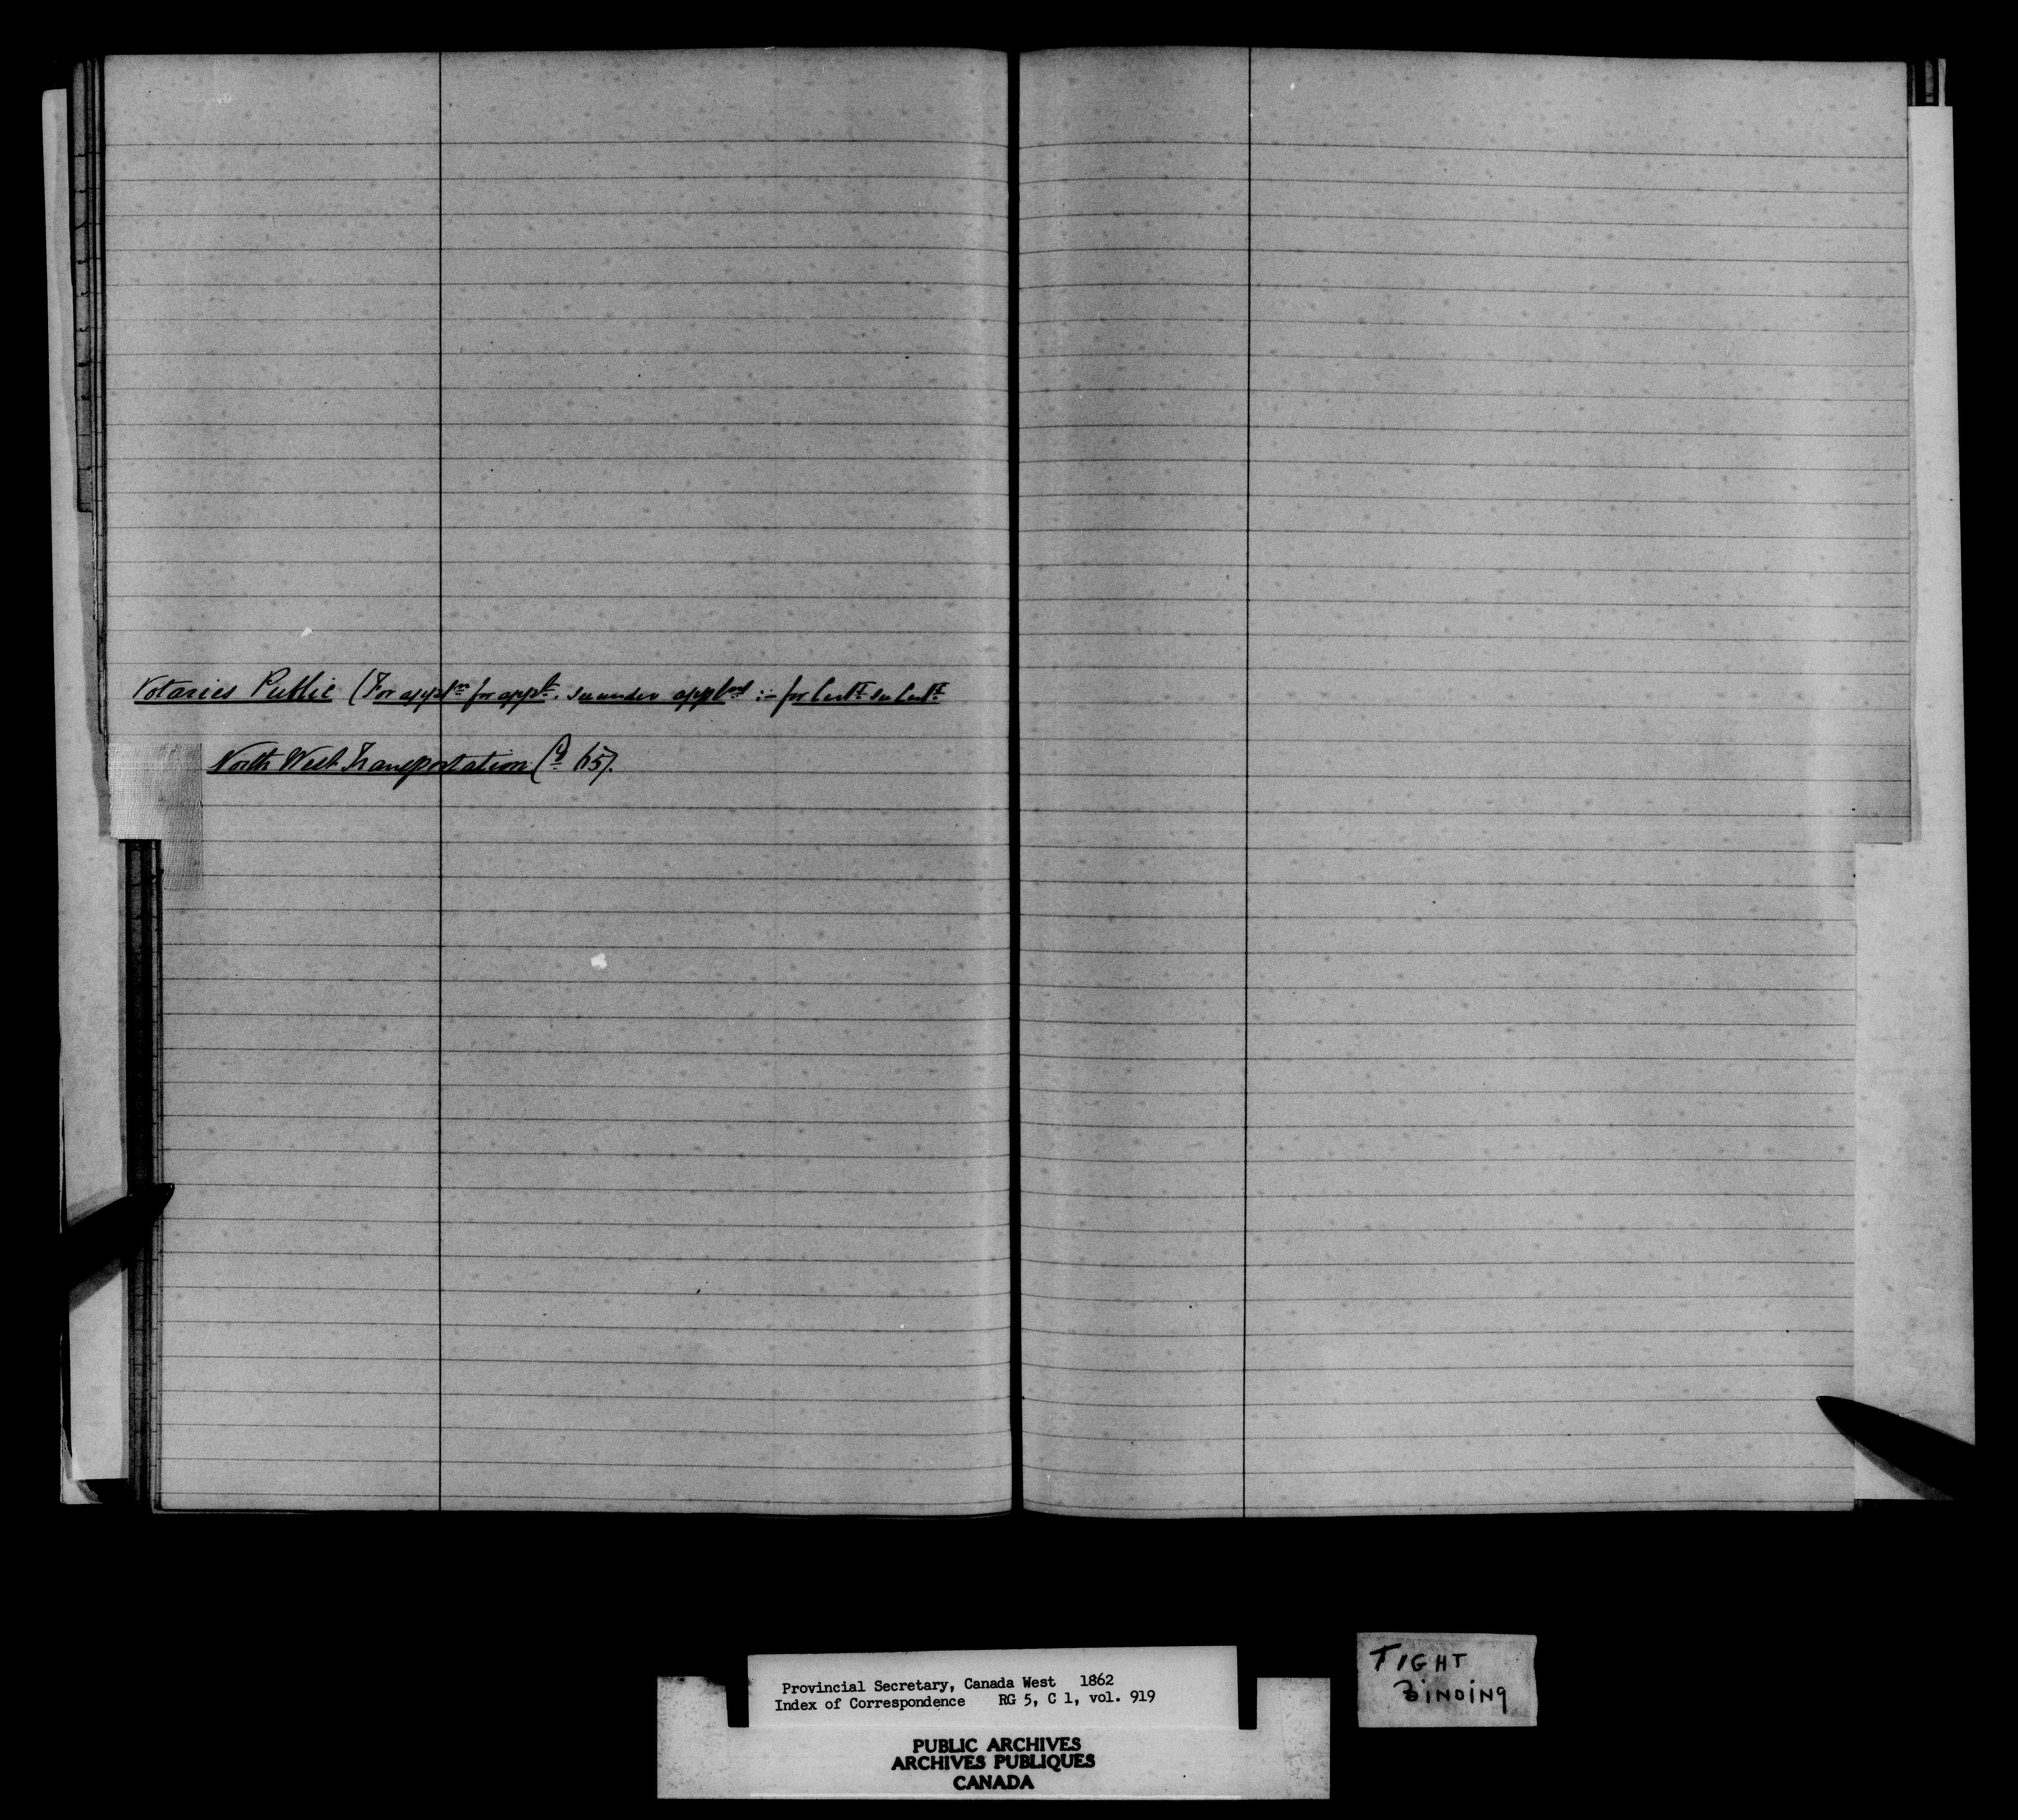 Notaries Public (For applns for appt. see under appts :- for Certt see Certt
North West Transportation (Co 65).
Provincial Secretary, Canada West 1862
Index of Correspondence RG 5, C 1, vol. 919
PUBLIC ARCHIVES
ARCHIVES PUBLIQUES
CANADA
TIGHT
BINDING